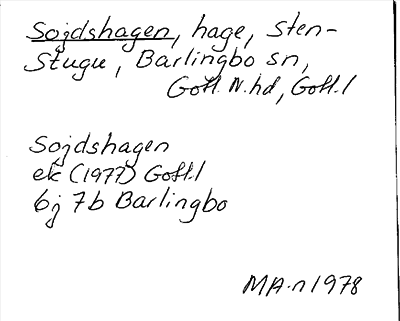 Sojdshagen, hage, Sten-
Stugu, Barlingbo sn,
Gotl. N. hd, Gotl. l
Sojdshagen
ek (1977) Gotl. l
6j 7b Barlingbo
MA-n 1978